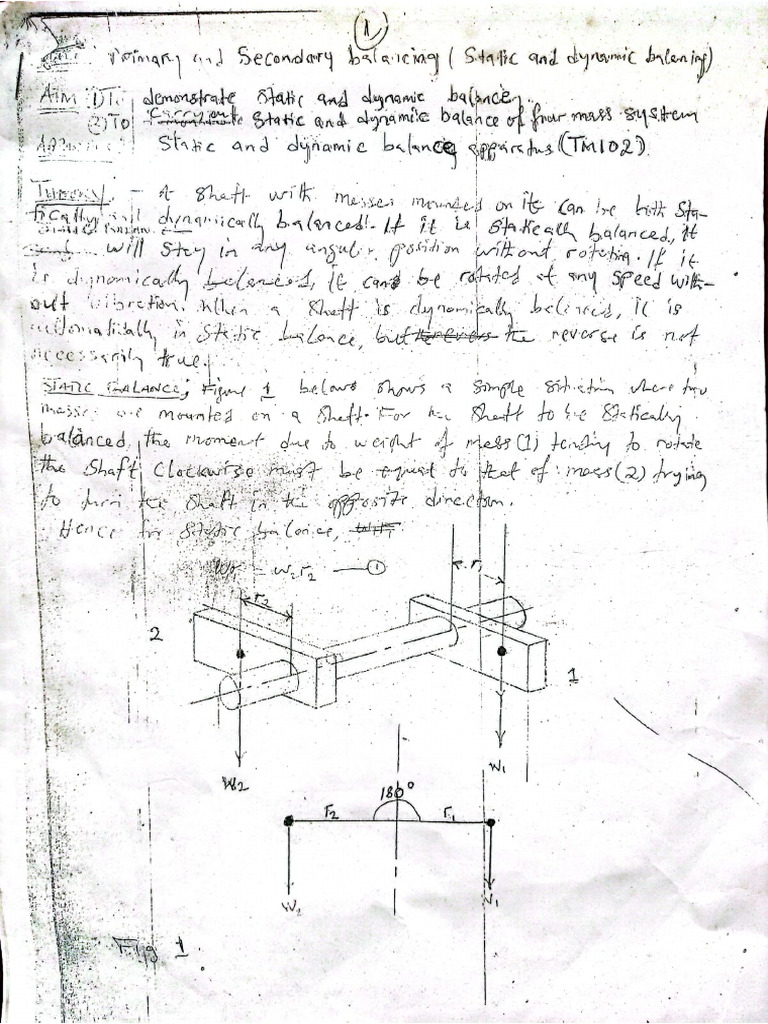 1
Primary and Secondary balancing (Static and dynamic balancing)
AIM 1) To demonstrate static and dynamic balance.
2) To carry out static and dynamic balance of four mass system
Static and dynamic balance apparatus (TM102)
THEORY: - A shaft with masses mounted on it can be both sta-
tically and dynamically balanced. If it is statically balanced, it
will stay in any angular position without rotating. If it
is dynamically balanced, it can be rotated at any speed with-
out vibration. When a shaft is dynamically balanced, it is
automatically in static balance, but the reverse is not
necessarily true.
STATIC BALANCE; Figure 1 below shows a simple situation where two
masses are mounted on a shaft. For the shaft to be statically
balanced, the moment due to weight of mass (1) tending to rotate
the shaft clockwise must be equal to that of mass (2) trying
to turn the shaft in the opposite direction.
Hence for static balance,
= W2r2 — 1
r1
r2
2
1
W2
W1
180°
r2 r1
W2 W1
Fig 1.